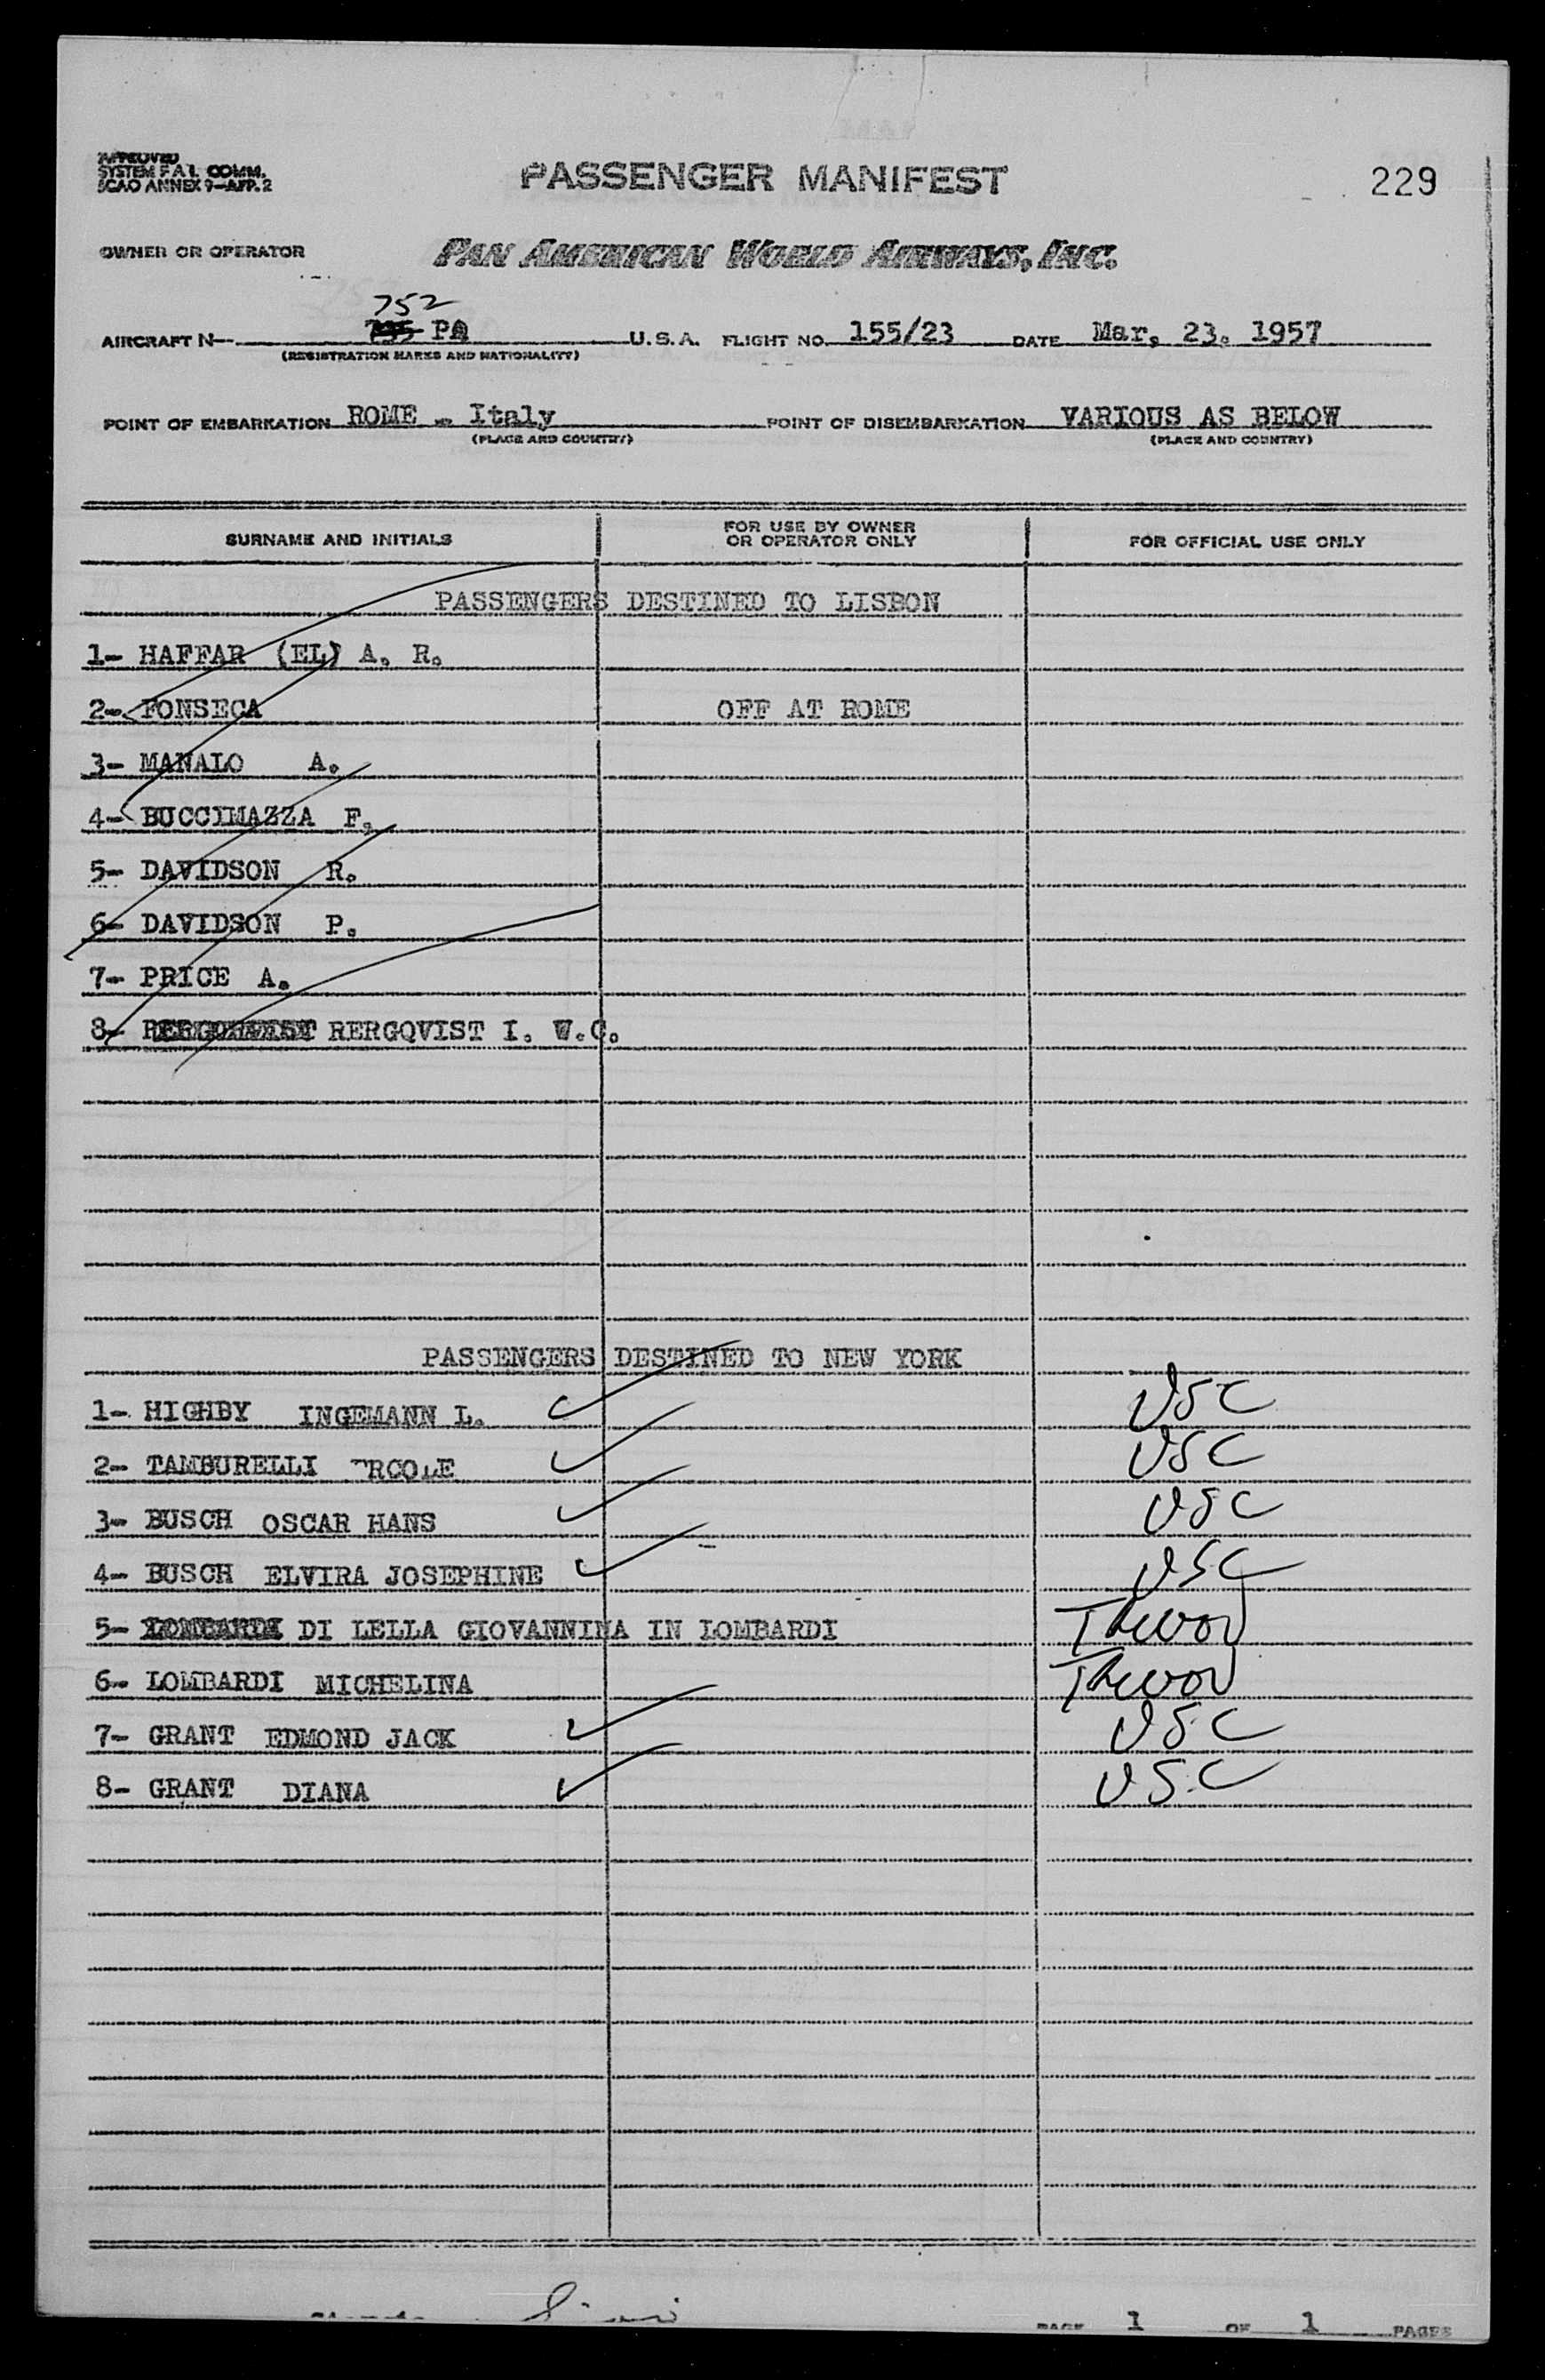 APPROVED
SYSTEM F.A.L. COMM.
ICAO ANNEX 9-APP. 2
PASSENGER MANIFEST
229
OWNER OR OPERATOR
PAN AMERICAN WORLD AIRWAYS, INC.
752
AIRCRAFT N- 735 PA U.S.A. FLIGHT NO. 155/23 DATE Mar, 23. 1957
(REGISTRATION MARKS AND NATIONALITY)
POINT OF EMBARKATION ROME - Italy POINT OF DISEMBARKATION VARIOUS AS BELOW
(PLACE AND COUNTRY) (PLACE AND COUNTRY)
SURNAME AND INITIALS FOR USE BY OWNER OR OPERATOR ONLY FOR OFFICIAL USE ONLY
PASSENGERS DESTINED TO LISBON
1- HAFFAR (EL) A. R.
2- FONSECA OFF AT ROME
3- MANALO A.
4- BUCCIMAZZA F.
5- DAVIDSON R.
6- DAVIDSON P.
7- PRICE A.
8- RERGQVIST I. W.C.
PASSENGERS DESTINED TO NEW YORK
1- HIGHBY INGEMANN L. USC
2- TAMBURELLI ERCOLE USC
3- BUSCH OSCAR HANS USC
4- BUSCH ELVIRA JOSEPHINE USC
5- LOMBARDI DI LELLA GIOVANNINA IN LOMBARDI
6- LOMBARDI MICHELINA
7- GRANT EDMOND JACK USC
8- GRANT DIANA USC
PAGE 1 OF 1 PAGES